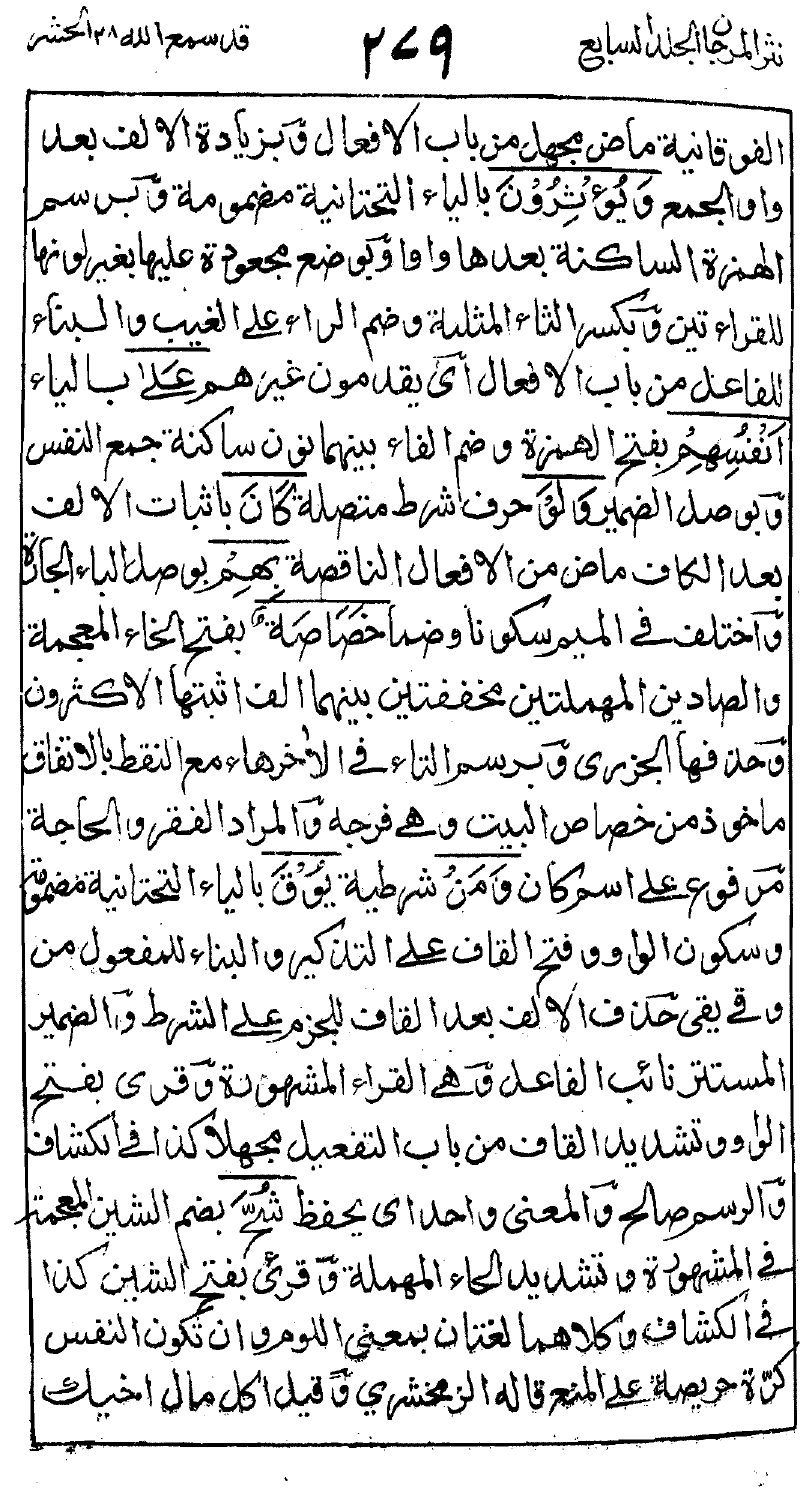 نثر المرجان الجلد السابع
٢٧٩
قد سمع الله ٢٨ الحشر
الفوقانية ماض مجهل من باب الافعال وَبزيادة الالف بعد
واو الجمع وَيُؤْثِرُوْنَ بالياء التحتانية مضمومة وَبرسم
الهمزة الساكنة بعدها واوا وَبوضع مجعودة عليها بغير لونها
للقراءتين وَبكسر الثاء المثلثة وضم الراء على الغيب والبناء
للفاعل من باب الافعال اَى يقدمون غيرهم عَلٰى بالياء
اَنْفُسِهِمْ بفتح الهمزة وضم الفاء بينهما نون ساكنة جمع النفس
وَبوصل الضمير وَلَوْ حرف شرط متصلة كَانَ باثبات الالف
بعد الكاف ماض من الافعال الناقصة بِهِمْ بوصل الباء الجارة
وَاختلف فى الميم سكونا وضما خَصَاصَةٌ بفتح الخاء المعجمة
والصادين المهملتين مخففتين بينهما الف اثبتها الاكثرون
وَحذفها الجزرى وَبرسم التاء فى الاٰخر هاء مع النقط بالاتفاق
ماخوذ من خصاص البيت وهى فرجه وَالمراد الفقر والحاجة
مَرفوع على اسم كان وَمَنْ شرطية يُوْقَ بالياء التحتانية مضمومة
وسكون الواو وفتح القاف على التذكير والبناء للمفعول من
وقى يقى حَذف الالف بعد القاف للجزم على الشرط وَالضمير
المستتر نائب الفاعل وَهى القراءة المشهورة وَقرى بفتح
الواو وتشديد القاف من باب التفعيل مجهلا كذا فى الكشاف
وَالرسم صالح وَالمعنى واحد اى يحفظ شُحَّ بضم الشين المعجمة
فى المشهورة وتشديد الحاء المهملة وَقرئ بفتح الشين كذا
فى الكشاف وكلاهما لغتان بمعنى اللوم وان تكون النفس
كزّة حريصة على المنع قاله الزمخشري وَقيل اكل مال اخيك